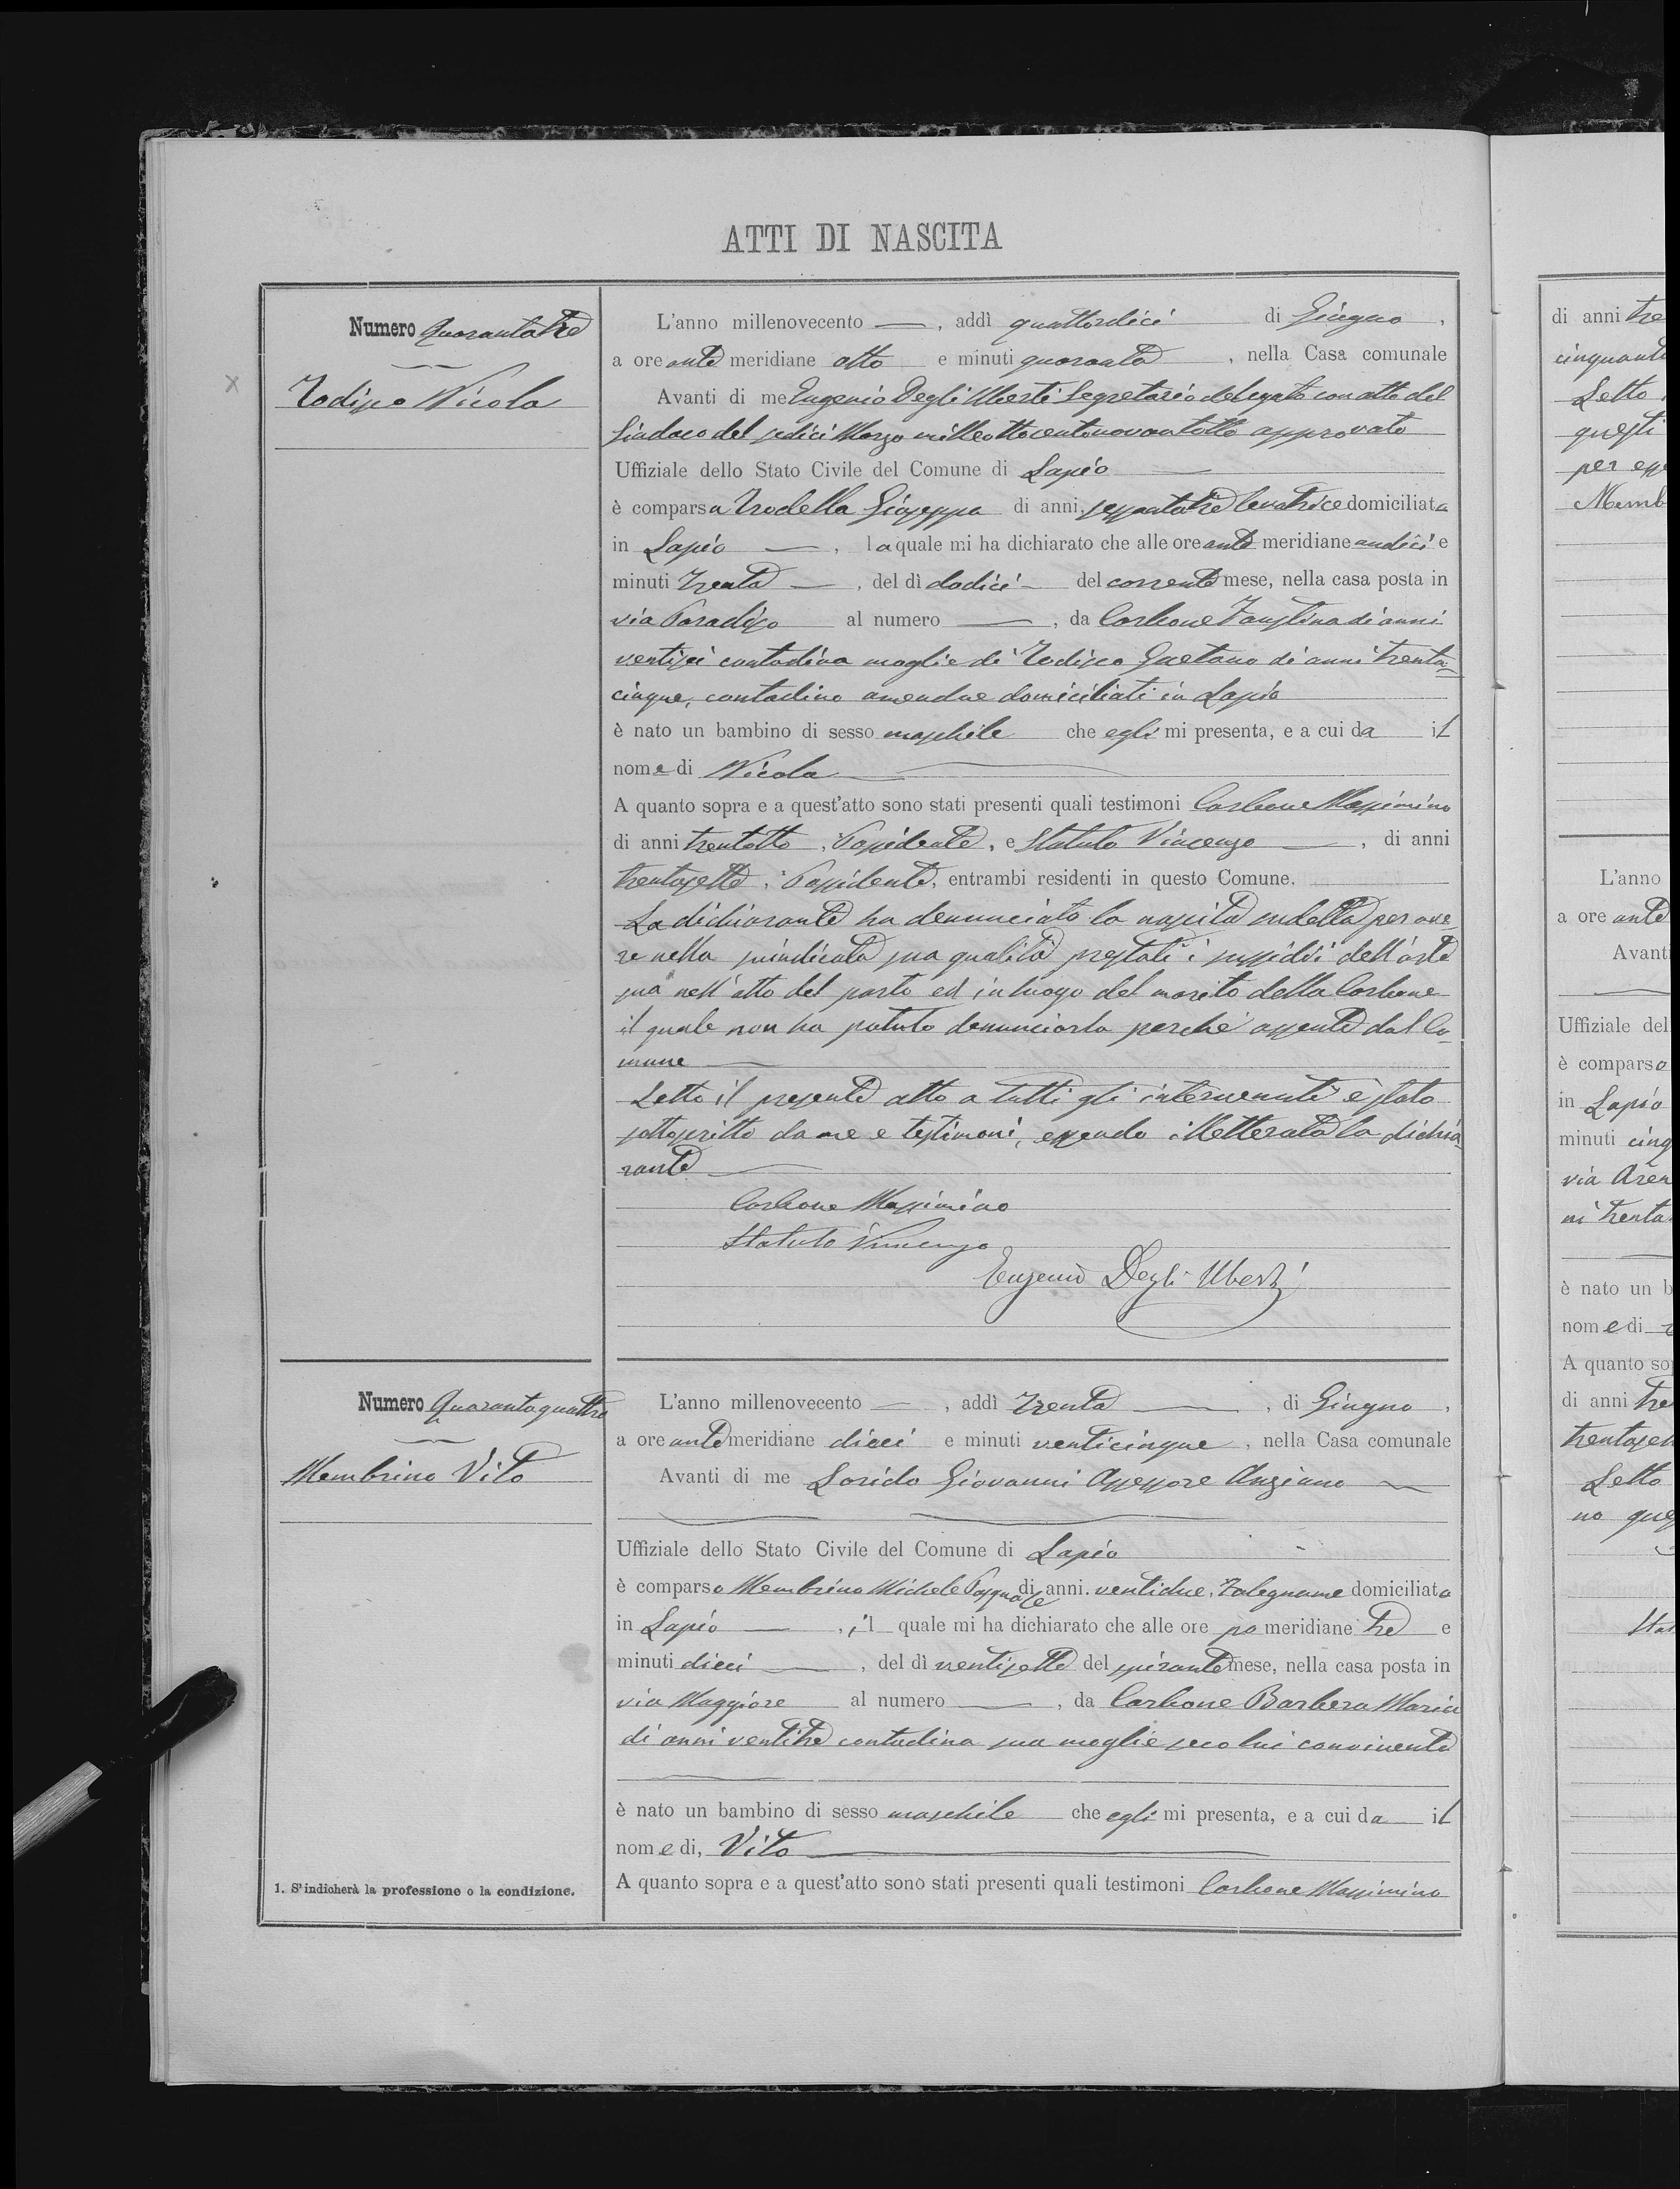 ATTI DI NASCITA
Numero Quarantatre
Todisco Nicola
L'anno millenovecento —, addì quattordici di Giugno,
a ore ante meridiane otto e minuti quaranta, nella Casa comunale
Avanti di me Eugenio Degli Uberti Segretario delegato con atto del
Sindaco del sedici Marzo milleottocentonovantotto approvato
Uffiziale dello Stato Civile del Comune di Lapio
è comparsa Trodella Giuseppa di anni sessantatre levatrice domiciliata
in Lapio —, la quale mi ha dichiarato che alle ore ante meridiane undici e
minuti trenta —, del dì dodici del corrente mese, nella casa posta in
via Paradiso al numero —, da Carbone Faustina di anni
ventisei contadina moglie di Todisco Gaetano di anni trenta-
cinque, contadino amendue domiciliati in Lapio
è nato un bambino di sesso maschile che egli mi presenta, e a cui da il
nome di Nicola
A quanto sopra e a quest'atto sono stati presenti quali testimoni Carbone Massimino
di anni trentotto, Possidente, e Statuto Vincenzo —, di anni
trentasette, Possidente, entrambi residenti in questo Comune.
La dichiarante ha denunciato la nascita sudetta per ave-
re nella suindicata sua qualità prestati i sussidii dell'arte
sua nell'atto del parto ed in luogo del marito della Carbone
il quale non ha potuto denunciarla perché assente dal Co-
mune
Letto il presente atto a tutti gli intervenuti è stato
sottoscritto da me e testimoni, essendo illetterata la dichia-
rante
Carbone Massimino
Statuto Vincenzo
Eugenio Degli Uberti
Numero Quarantaquattro
Membrino Vito
L'anno millenovecento —, addì trenta —, di Giugno,
a ore ante meridiane dieci e minuti venticinque, nella Casa comunale
Avanti di me Lorido Giovanni Assessore Anziano
Uffiziale dello Stato Civile del Comune di Lapio
è comparso Membrino Michele Pasquale di anni ventidue, Falegname domiciliato
in Lapio —, il quale mi ha dichiarato che alle ore po meridiane tre e
minuti dieci —, del dì ventisette del spirante mese, nella casa posta in
via Maggiore al numero —, da Carbone Barbera Maria
di anni ventitre contadina sua moglie seco lui convivente
è nato un bambino di sesso maschile che egli mi presenta, e a cui da il
nome di, Vito
A quanto sopra e a quest'atto sono stati presenti quali testimoni Carbone Massimino
1. S'indicherà la professione o la condizione.
di anni tre
cinquant
Letto
questi
per ess
Memb
L'anno
a ore ante
Avanti
Uffiziale del
è comparso
in Lapio
minuti cinq
via Aren
ni trenta
è nato un b
nome di
A quanto so
di anni tre
trentaset
Letto
no ques
Stat